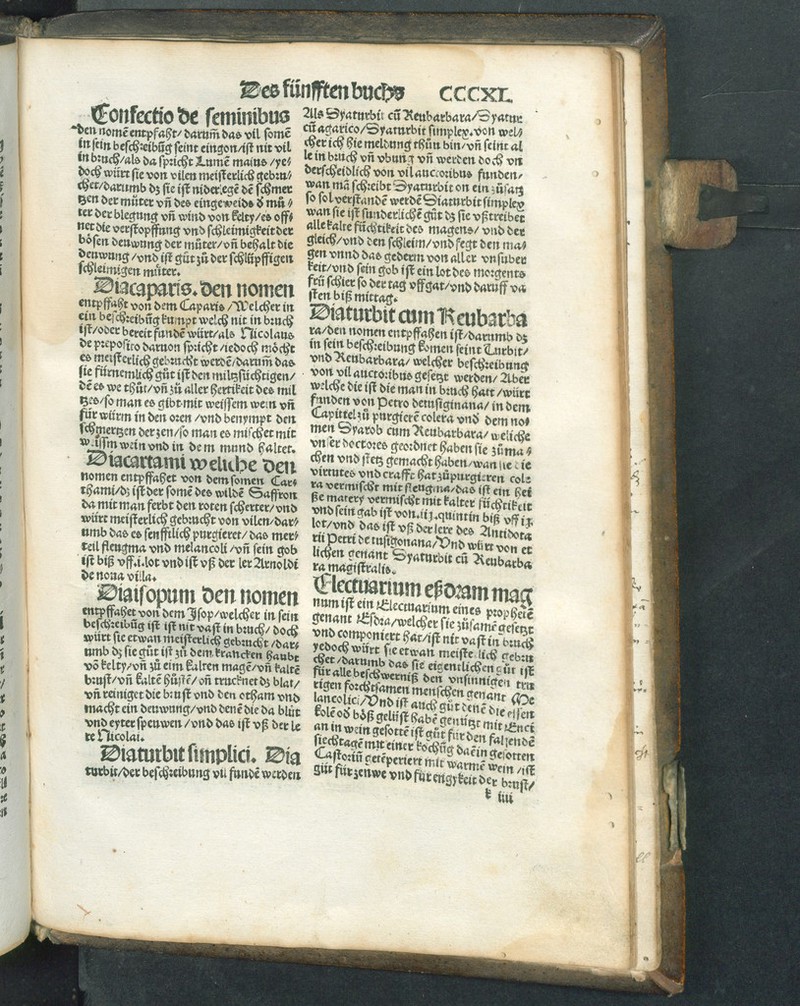 Des fünfften buchs CCCXL.
Confectio de seminibus
den nomē entpfaht/darum̄ das vil somē
in sein beschreibūg seint eingon/ist nit vil
in bruch/als da spricht Lumē maius/ye/
doch würt sie von vilen meisterlich gebru/
chet/darumb dz sie ist nider legē dē schmer
tzen der můter vn̄ des eingeweids d mů/
ter der blegung vn̄ wind von kelty/es off/
net die verstopffung vnd schleimigkeit der
bösen deuwung der můter/vn̄ behalt die
deuwung/vnd ist gůt zů der schlüpffigen
schleimigen můter.
Diacaparis. den nomen
entpffaht von dem Caparis/Welcher in
ein beschreibūg kumpt welch nit in bruch
ist/oder bereit fundē würt/als Nicolaus
de preposito daruon spricht/iedoch möcht
es meisterlich gebrucht werdē/darum̄ das
sie fürnemlich gůt ist den miltzsüchtigen/
dē es we thůt/vn̄ zů aller hertikeit des mil
tzes/so man es gibt mit weissem wein vn̄
für würm in den oren/vnd benympt den
schmertzen der zen/so man es mischet mit
weissm wein vnd in dem mund haltet.
Diacartami weliche den
nomen entpffahet von dem somen Car/
thami/dz ist der somē des wildē Saffron
da mit man ferbt den roten scherter/vnd
würt meisterlich gebrucht von vilen/dar/
umb das es senfftilich purgieret/das mer/
teil fleugma vnd melancoli/vn̄ sein gob
ist biß vff.i.lot vnd ist vß der ler Arnoldi
de noua villa.
Diaisopum den nomen
entpffahet von dem Isop/welcher in sein
beschreibūg ist ist nit vast in bruch/doch
würt sie etwan meisterlich gebrucht/dar/
umb dz sie gůt ist zů dem krancken haubt
vō kelty/vn̄ zů ein kalten magē/vn̄ kaltē
brust/vn̄ kaltē hůstē/on trucknet dz blat/
vn̄ reiniget die brust vnd den otham vnd
macht ein deuwung/vnd denē die da blůt
vnd eyter speuwen/vnd das ist vß der le
re Nicolai.
Diaturbit simplici. Dia
turbit/der beschreibung vil fundē werden
Als Dyaturbit cū Reubarbara/Dyatur
cū agarico/Dyaturbit simplex. von wel/
cher ich hie meldung thůn bin/vn̄ seint al
le in bruch vn̄ vbung vn̄ werden doch vn
derscheidlich von vil auctoribus funden/
wan mā schreibt Dyaturbit on ein zůsatz
so sol verstandē werdē Diaturbit simplex
wan sie ist sunderlichē gůt dz sie vßtreibet
alle kalte füchtikeit des magens/vnd der
gleich/vnd den schleim/vnd fegt den ma/
gen vnnd das gederm von aller vnsuber
keit/vnd sein gob ist ein lot des morgents
frü schier so der tag vffgat/vnd daruff va
sten biß mittag.
Diaturbit cum Reubarba
ra/den nomen entpffahen ist/darumb dz
in sein beschreibung komen seint Turbit/
vnd Reubarbara/welcher beschreibung
von vil auctoribus gesetzt werden/Aber
welche die ist die man in bruch hatt/würt
funden von Petro detusiginana/in dem
Capittel zů purgierē colera vnd dem no/
men Syrob cum Reubarbara/weliche
vnser doctores geordnet haben sie zů ma/
chen vnd stetz gemacht haben/wan sie die
virtutes vnd crafft hat zůpurgieren cole
ra vermischt mit fleugma/das ist ein hei
ße matery vermischt mit kalter füchtikeit
vnd sein gab ist von.iij.quintin biß vff ij.
lot/vnd das ist vß der lere des Antidota
rii Petri de tusigonana/Vnd würt von et
lichen genant Dyaturbit cū Reubarba
ra magistralis.
Electuarium eßdram mag
num ist ein Electuarium eines prophetē
genant Esdra/welcher sie zůsamē gesetzt
vnd componiert hat/ist nit vast in bruch
yedoch würt sie etwan meisterlich gebru
chet/darumb das sie eigentlichen gůt ist
für alle beschwerniß den vnsinnigen tru
rigen forchtsamen menschen genant Me
lancolici/Vnd ist auch gůt denē die eisen
kolē od böß gelüst habē genützt mit Enci
an in wein gesottē ist gůt für den fallendē
siechtagē mit einer kochūg da ein gesotten
Castoriū getēperiert mit warmē wein/ist
gůt für zenwe vnd für engykeit der brust/
k iiii